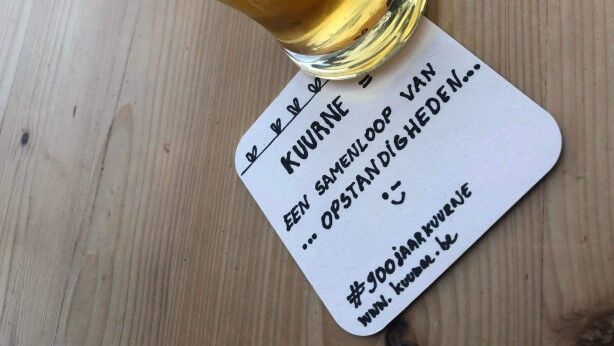 KUURNE =
EEN SAMENLOOP VAN
... OPSTANDIGHEDEN...
#900jaarKUURNE
www.kuurne.be